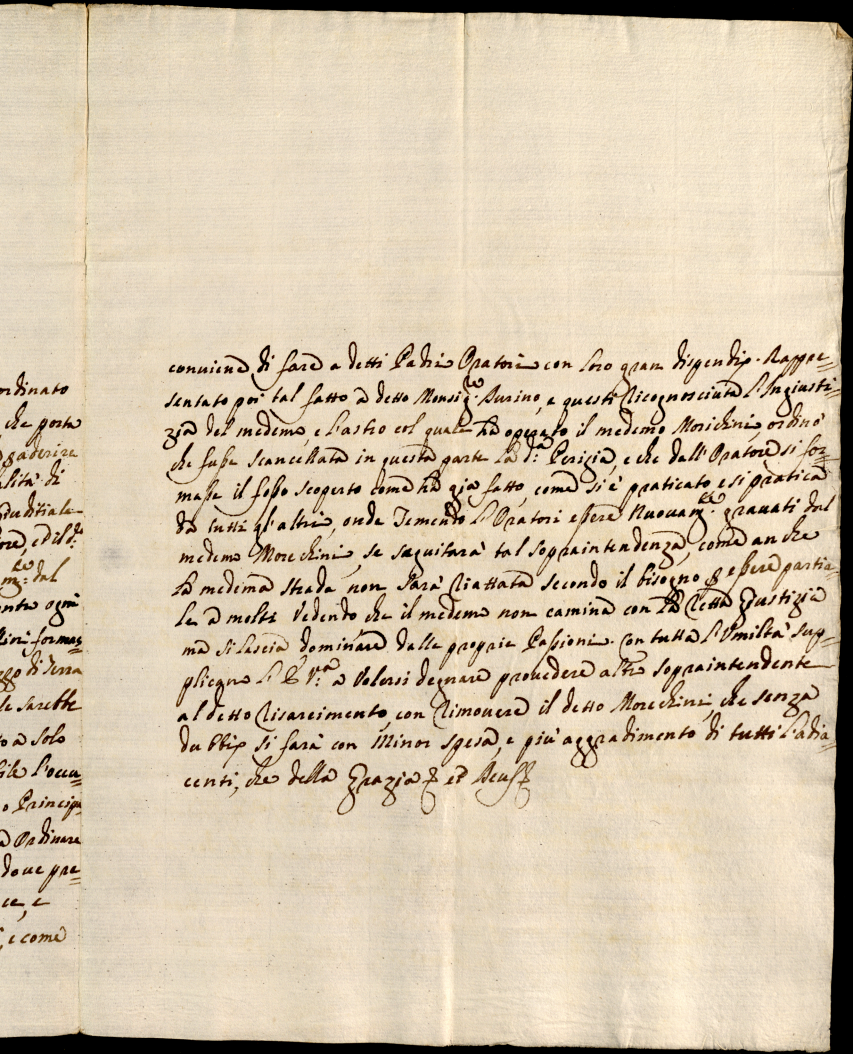 ordinato
che porta
aderire
alità di
giuditiale
ore, e di d.ᵒ
m.ᵗᵉ dal
ogni
formaz
di terra
le sarebbe
to a solo
sile l'occu=
o Principa
Ordinare
doue pre=
ce, e
, e come
conuiene di fare a detti Padri Oratori con loro gran dispendio. Rappre=
sentato poi tal fatto a detto Monsig.ʳᵉ Burino, e questi ricognosciuta l'Ingiusti=
zia del medemo, e l'astio col quale hà operato il medemo Morichini, ordinò
che fusse scancellata in questa parte la d.ᵃ Perizia, e che dall'Oratore si for=
masse il fosso scoperto come hà già fatto, come si è praticato e si pratica
da tutti gl'altri, onde Temendo l'Oratori essere nuouam.ᵗᵉ grauati dal
medemo Morechini, se seguitarà tal sopraintendenza, come anche
la medema strada non sarà riattata secondo il bisogno p essere partia=
le a molti Vedendo che il medemo non camina con la retta giustizia
ma si lascia dominare dalle proprie Passioni. Con tutta l'Vmiltà sup=
plicano l'E V.ᵃ a Volersi degnare prouedere altro sopraintendente
al detto risarcimento, con rimouere il detto Morechini, che senza
dubbio si farà con Minor spesa, e più aggradimento di tutti l'adia=
centi, che della Grazia